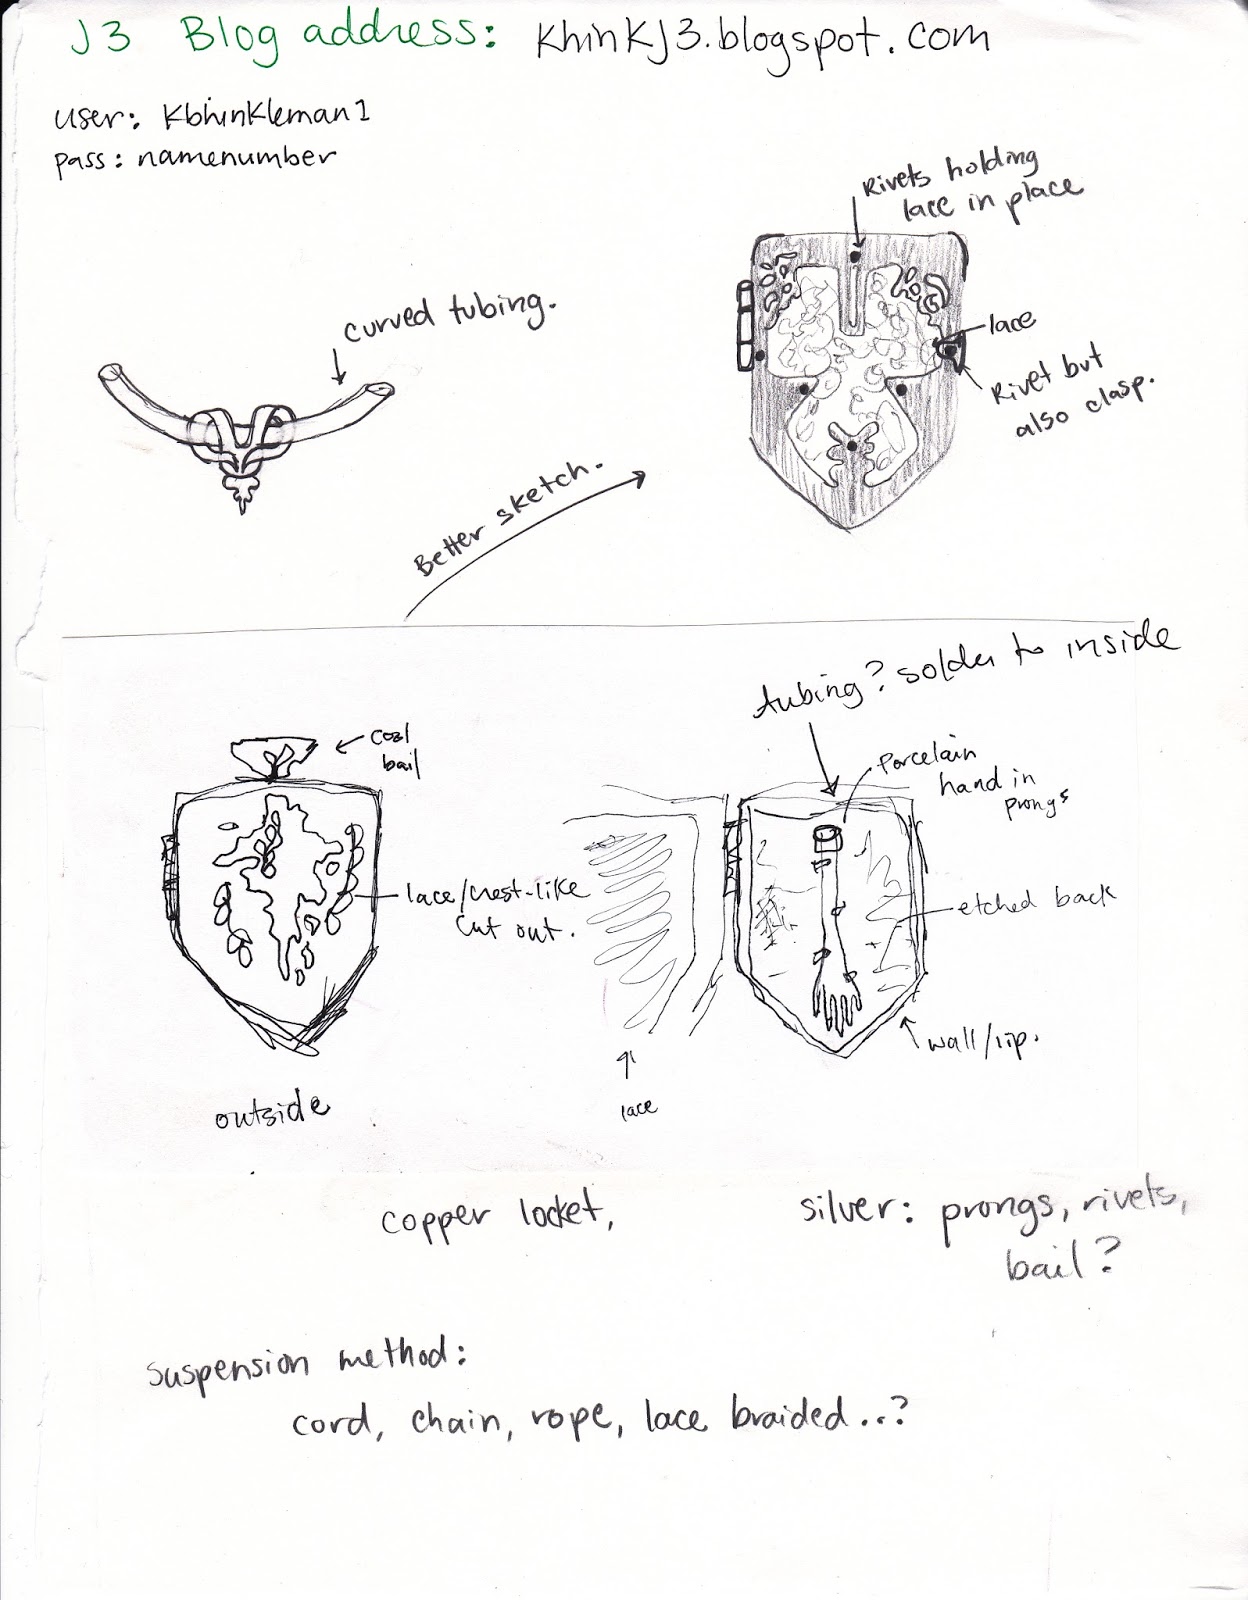 J3 Blog address: KhinKJ3.blogspot.com
user: Kbhinkleman1
pass: namenumber
Rivets holding
lace in place
curved tubing.
lace
Rivet but
also clasp.
Better sketch.
tubing? solder to inside
cool
bail
Porcelain
hand in
prongs
lace/crest-like
cut out.
etched back
wall/lip.
lace
outside
copper locket,
silver: prongs, rivets,
bail?
suspension method:
cord, chain, rope, lace braided...?